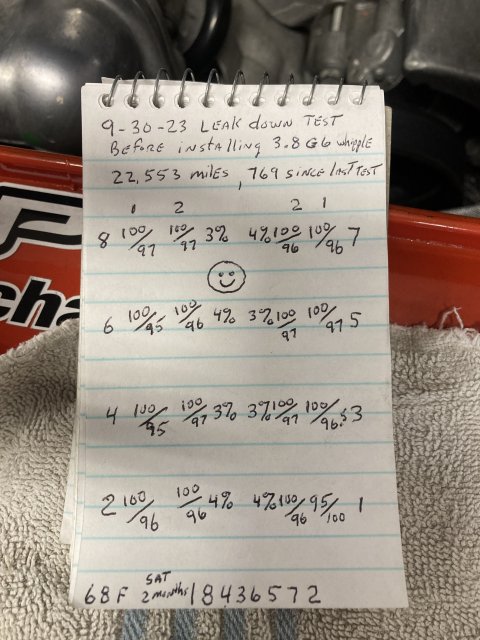 9-30-23 LEAK down TEST
BEFORE installing 3.8 G6 whipple
22,553 miles, 769 SINCE last TEST
1 2 2 1
8 100/97 100/97 3% 4% 100/96 100/96 7
6 100/95 100/96 4% 3% 100/97 100/97 5
4 100/95 100/97 3% 3% 100/97 100/96.5 3
2 100/96 100/96 4% 4% 100/96 95/100 1
68F SAT 2 months 18436572
cha